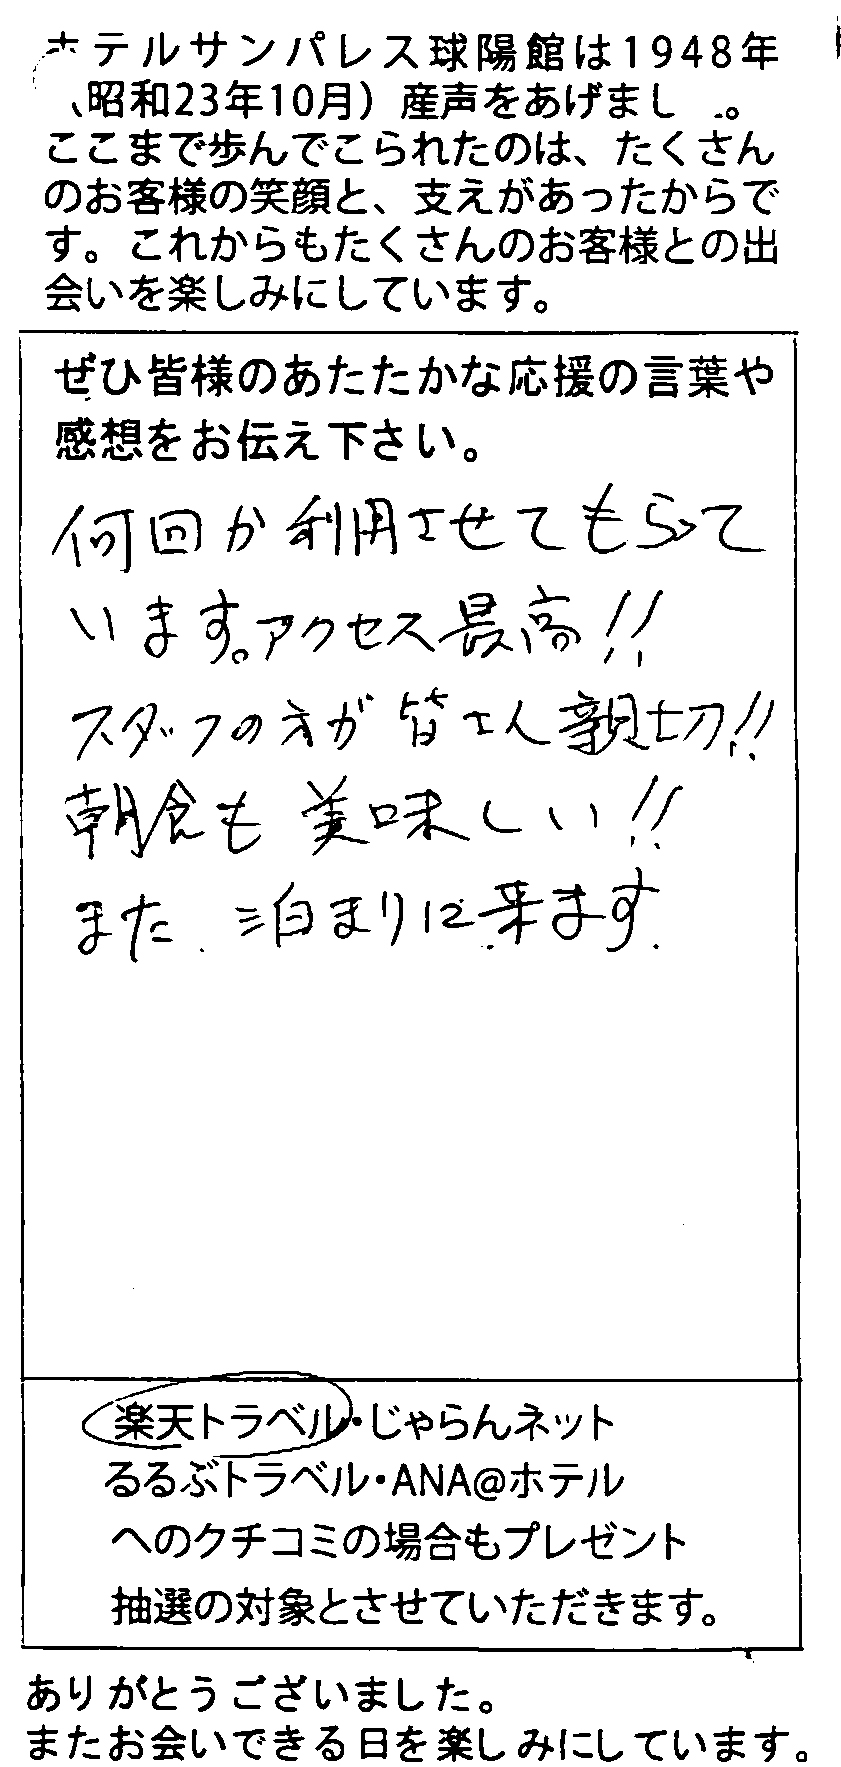 ホテルサンパレス球陽館は1948年
（昭和23年10月）産声をあげまし　。
ここまで歩んでこられたのは、たくさん
のお客様の笑顔と、支えがあったからで
す。これからもたくさんのお客様との出
会いを楽しみにしています。
ぜひ皆様のあたたかな応援の言葉や
感想をお伝え下さい。
何回か利用させてもらって
います。アクセス最高!!
スタッフの方が皆さん親切!!
朝食も美味しい!!
また、泊まりに来ます。
楽天トラベル・じゃらんネット
るるぶトラベル・ANA@ホテル
へのクチコミの場合もプレゼント
抽選の対象とさせていただきます。
ありがとうございました。
またお会いできる日を楽しみにしています。